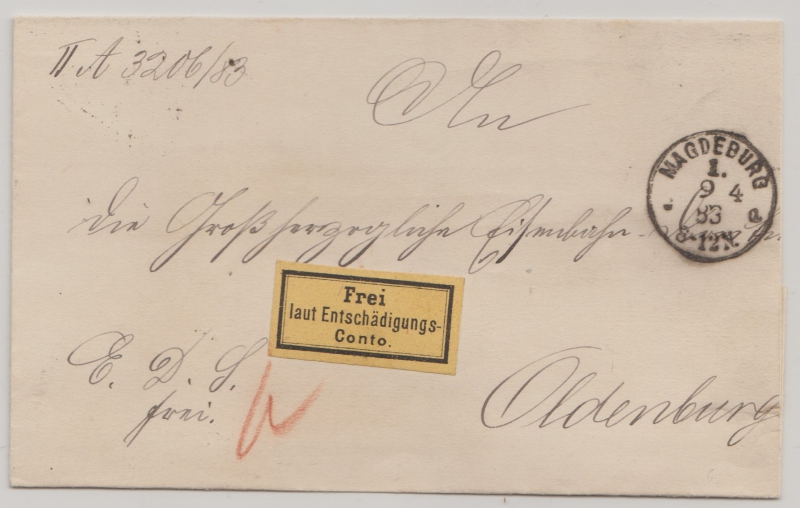 II A 3206/83
An
MAGDEBURG
1.
9 4
83
8-12N.
die Großherzogliche Eisenbahn-
Frei
laut Entschädigungs-
Conto.
E. D. S.
frei.
Oldenburg